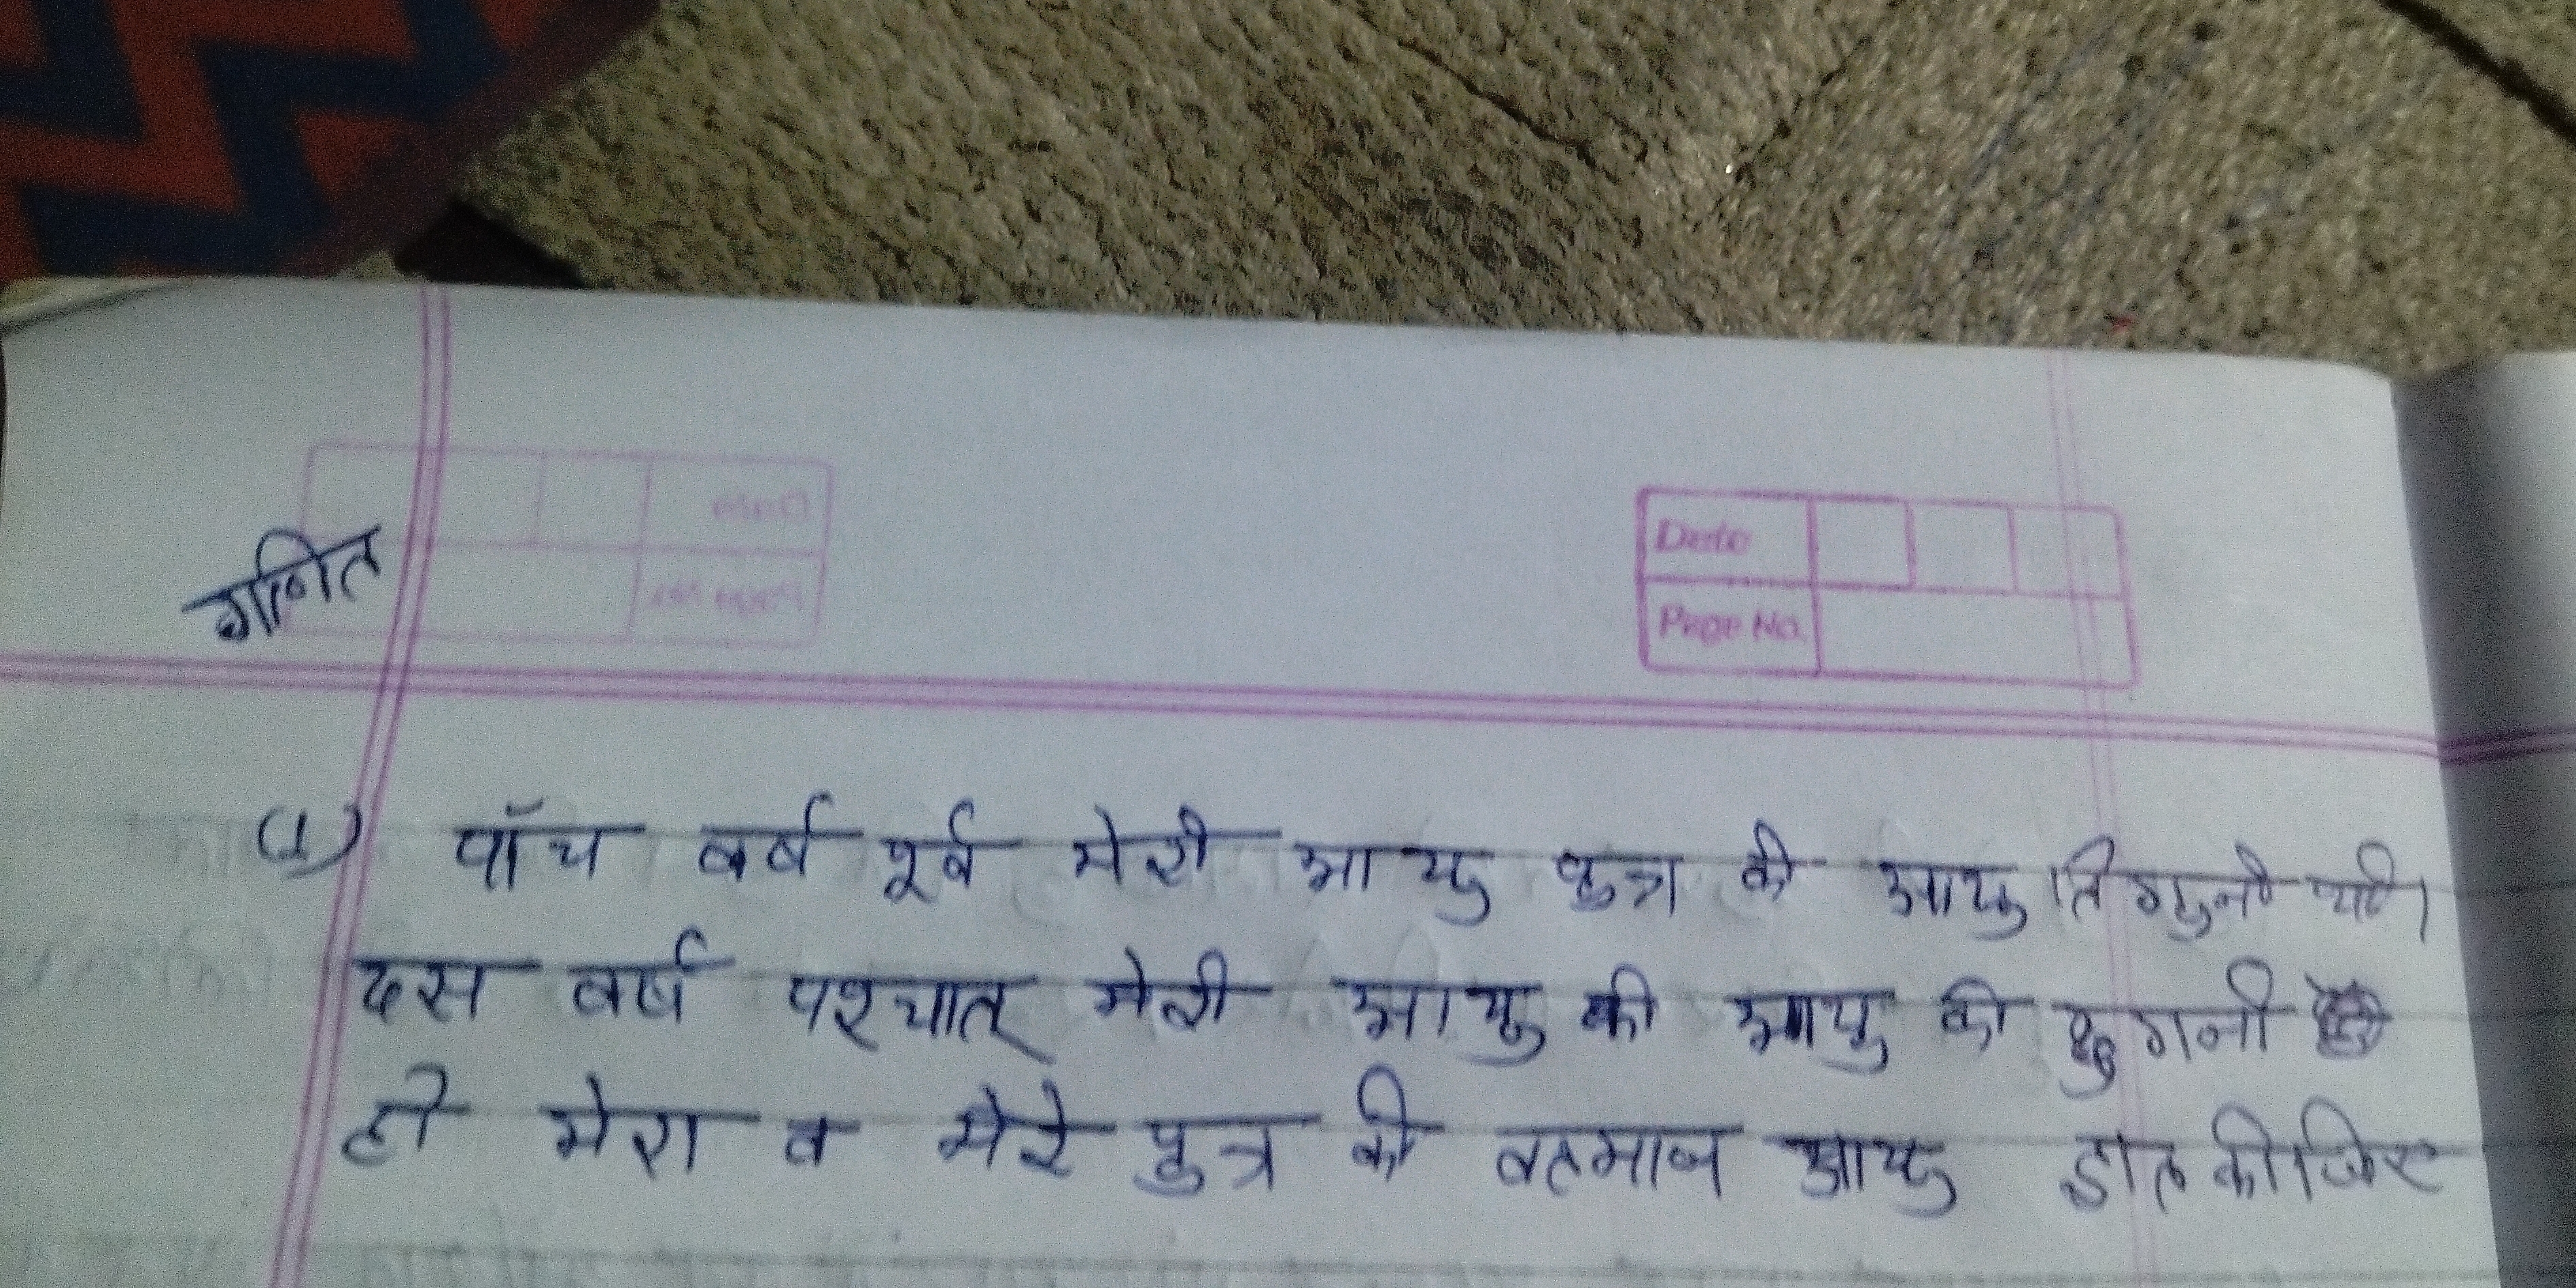 गणित
Date
Page No.
(1) पाँच वर्ष पूर्व मेरी आयु पुत्र की आयु तिगुनी थी।
दस वर्ष पश्चात् मेरी आयु की आयु की दुगनी
हो मेरा व मेरे पुत्र की वतमान आयु ज्ञात कीजिए